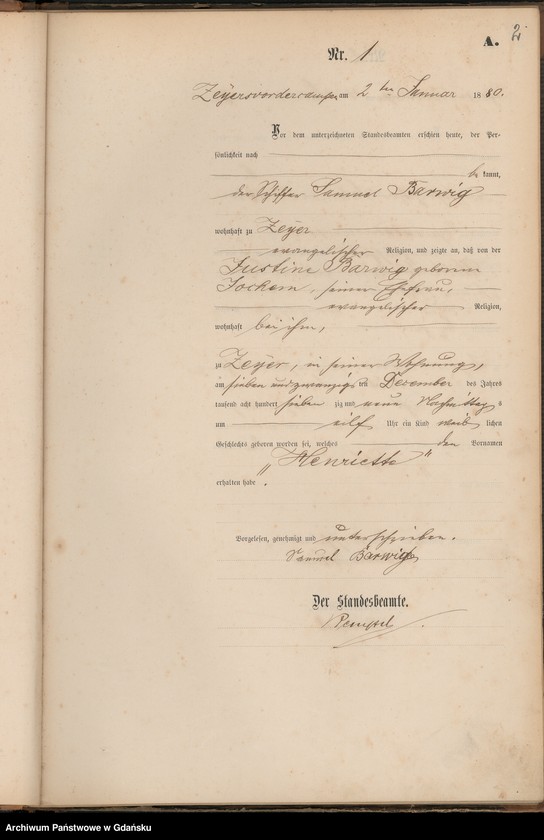 A. 2
Nr. 1
Zeyersvordercampen am 2ten Januar 1880.
Vor dem unterzeichneten Standesbeamten erschien heute, der Per-
sönlichkeit nach
be kannt,
der Schiffer Samuel Barwig
wohnhaft zu Zeyer
evangelischer Religion, und zeigte an, daß von der
Justine Barwig geborene
Jockem, seiner Ehefrau,
evangelischer Religion,
wohnhaft bei ihm,
zu Zeyer, in seiner Wohnung,
am sieben und zwanzigsten December des Jahres
tausend acht hundert sieben zig und neun Nachmittags
um eilf Uhr ein Kind weib lichen
Geschlechts geboren worden sei, welches den Vornamen
„Henriette“
erhalten habe.
Vorgelesen, genehmigt und unterschrieben.
Samuel Barwig
Der Standesbeamte.
Archiwum Państwowe w Gdańsku